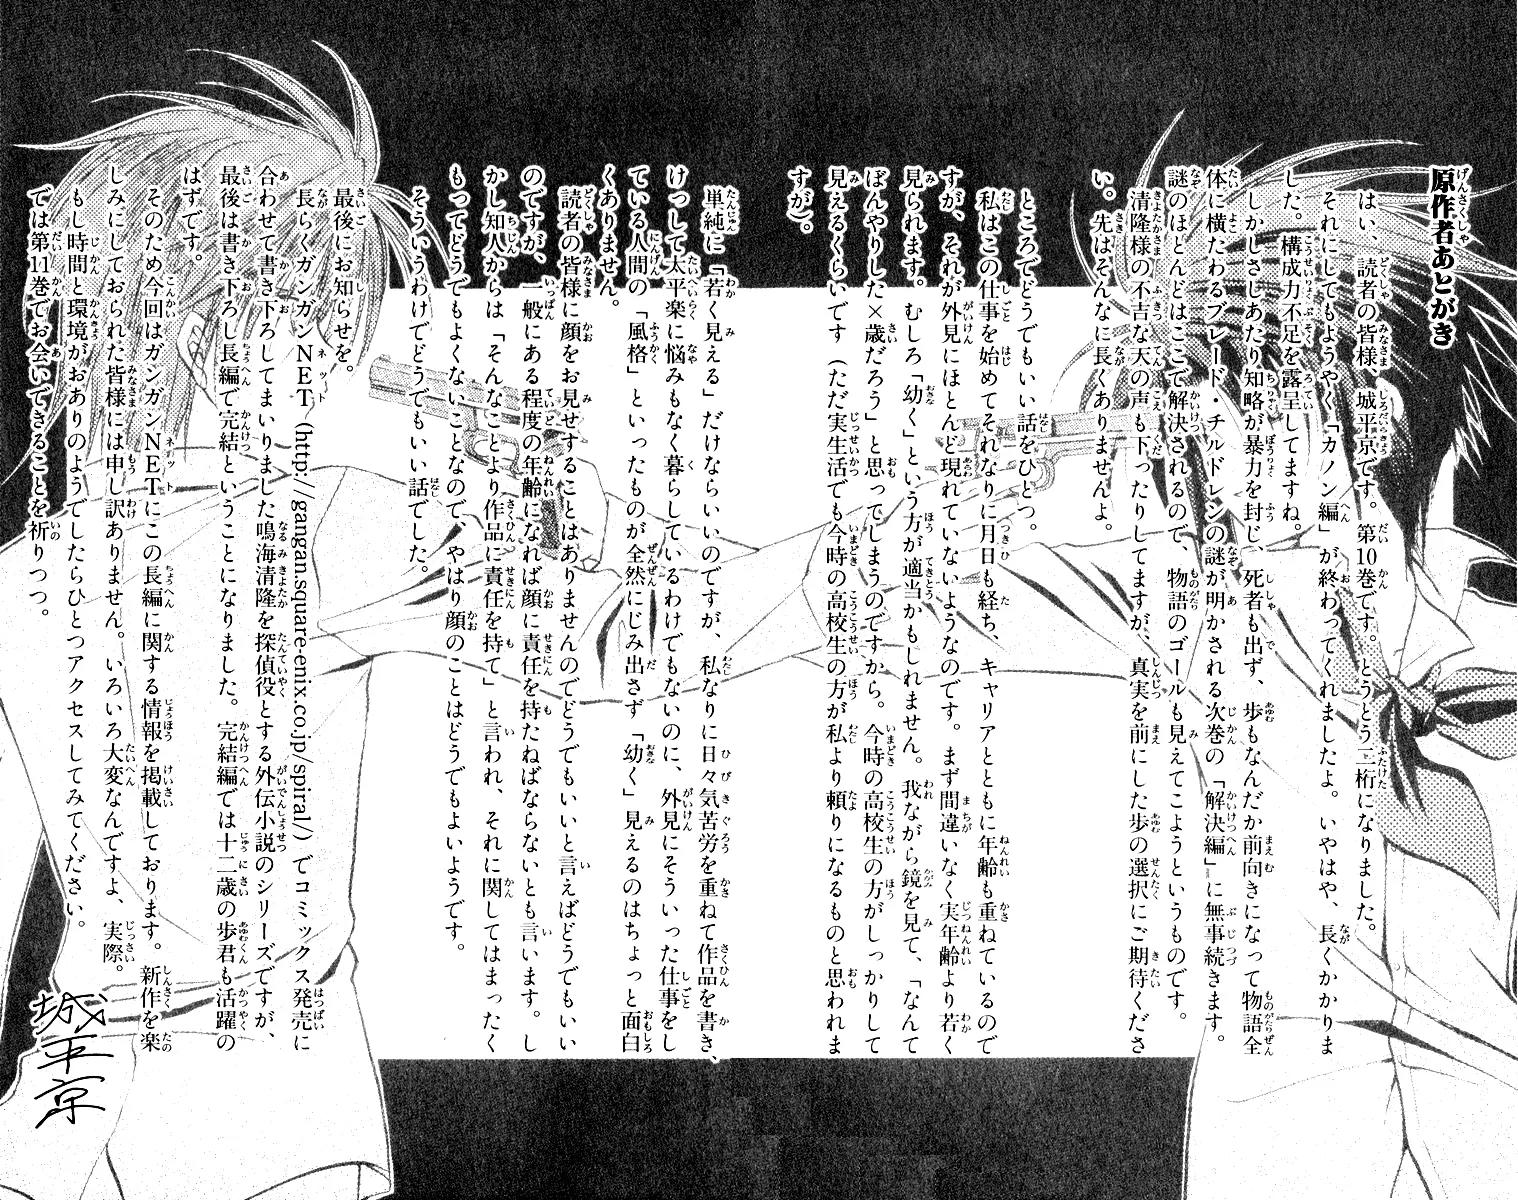 原作者あとがき
はい、読者の皆様、城平京です。第10巻です。とうとう二桁になりました。
それにしてもようやく「カノン編」が終わってくれましたよ。いやはや、長くかかりま
した。構成力不足を露呈してますね。
しかしさしあたり知略が暴力を封じ、死者も出ず、歩もなんだか前向きになって物語全
体に横たわるブレード・チルドレンの謎が明かされる次巻の「解決編」に無事続きます。
謎のほとんどはここで解決されるので、物語のゴールも見えてこようというものです。
清隆様の不吉な天の声も下ったりしてますが、真実を前にした歩の選択にご期待くださ
い。先はそんなに長くありませんよ。
ところでどうでもいい話をひとつ。
私はこの仕事を始めてそれなりに月日も経ち、キャリアとともに年齢も重ねているので
すが、それが外見にほとんど現れていないようなのです。まず間違いなく実年齢より若く
見られます。むしろ「幼く」という方が適当かもしれません。我ながら鏡を見て、「なんて
ぼんやりした×歳だろう」と思ってしまうのですから。今時の高校生の方がしっかりして
見えるくらいです（ただ実生活でも今時の高校生の方が私より頼りになるものと思われま
すが）。
単純に「若く見える」だけならいいのですが、私なりに日々気苦労を重ねて作品を書き、
けっして太平楽に悩みもなく暮らしているわけでもないのに、外見にそういった仕事をし
ている人間の「風格」といったものが全然にじみ出さず「幼く」見えるのはちょっと面白
くありません。
読者の皆様に顔をお見せすることはありませんのでどうでもいいと言えばどうでもいい
のですが、一般にある程度の年齢になれば顔に責任を持たねばならないとも言います。し
かし知人からは「そんなことより作品に責任を持て」と言われ、それに関してはまったく
もってどうでもよくないことなので、やはり顔のことはどうでもよいようです。
そういうわけでどうでもいい話でした。
最後にお知らせを。
長らくガンガンNET（http://gangan.square-enix.co.jp/spiral/）でコミックス発売に
合わせて書き下ろしてまいりました鳴海清隆を探偵役とする外伝小説のシリーズですが、
最後は書き下ろし長編で完結ということになりました。完結編では十二歳の歩君も活躍の
はずです。
そのため今回はガンガンNETにこの長編に関する情報を掲載しております。新作を楽
しみにしておられた皆様には申し訳ありません。いろいろ大変なんですよ、実際。
もし時間と環境がおありのようでしたらひとつアクセスしてみてください。
では第11巻でお会いできることを祈りつつ。
城平京